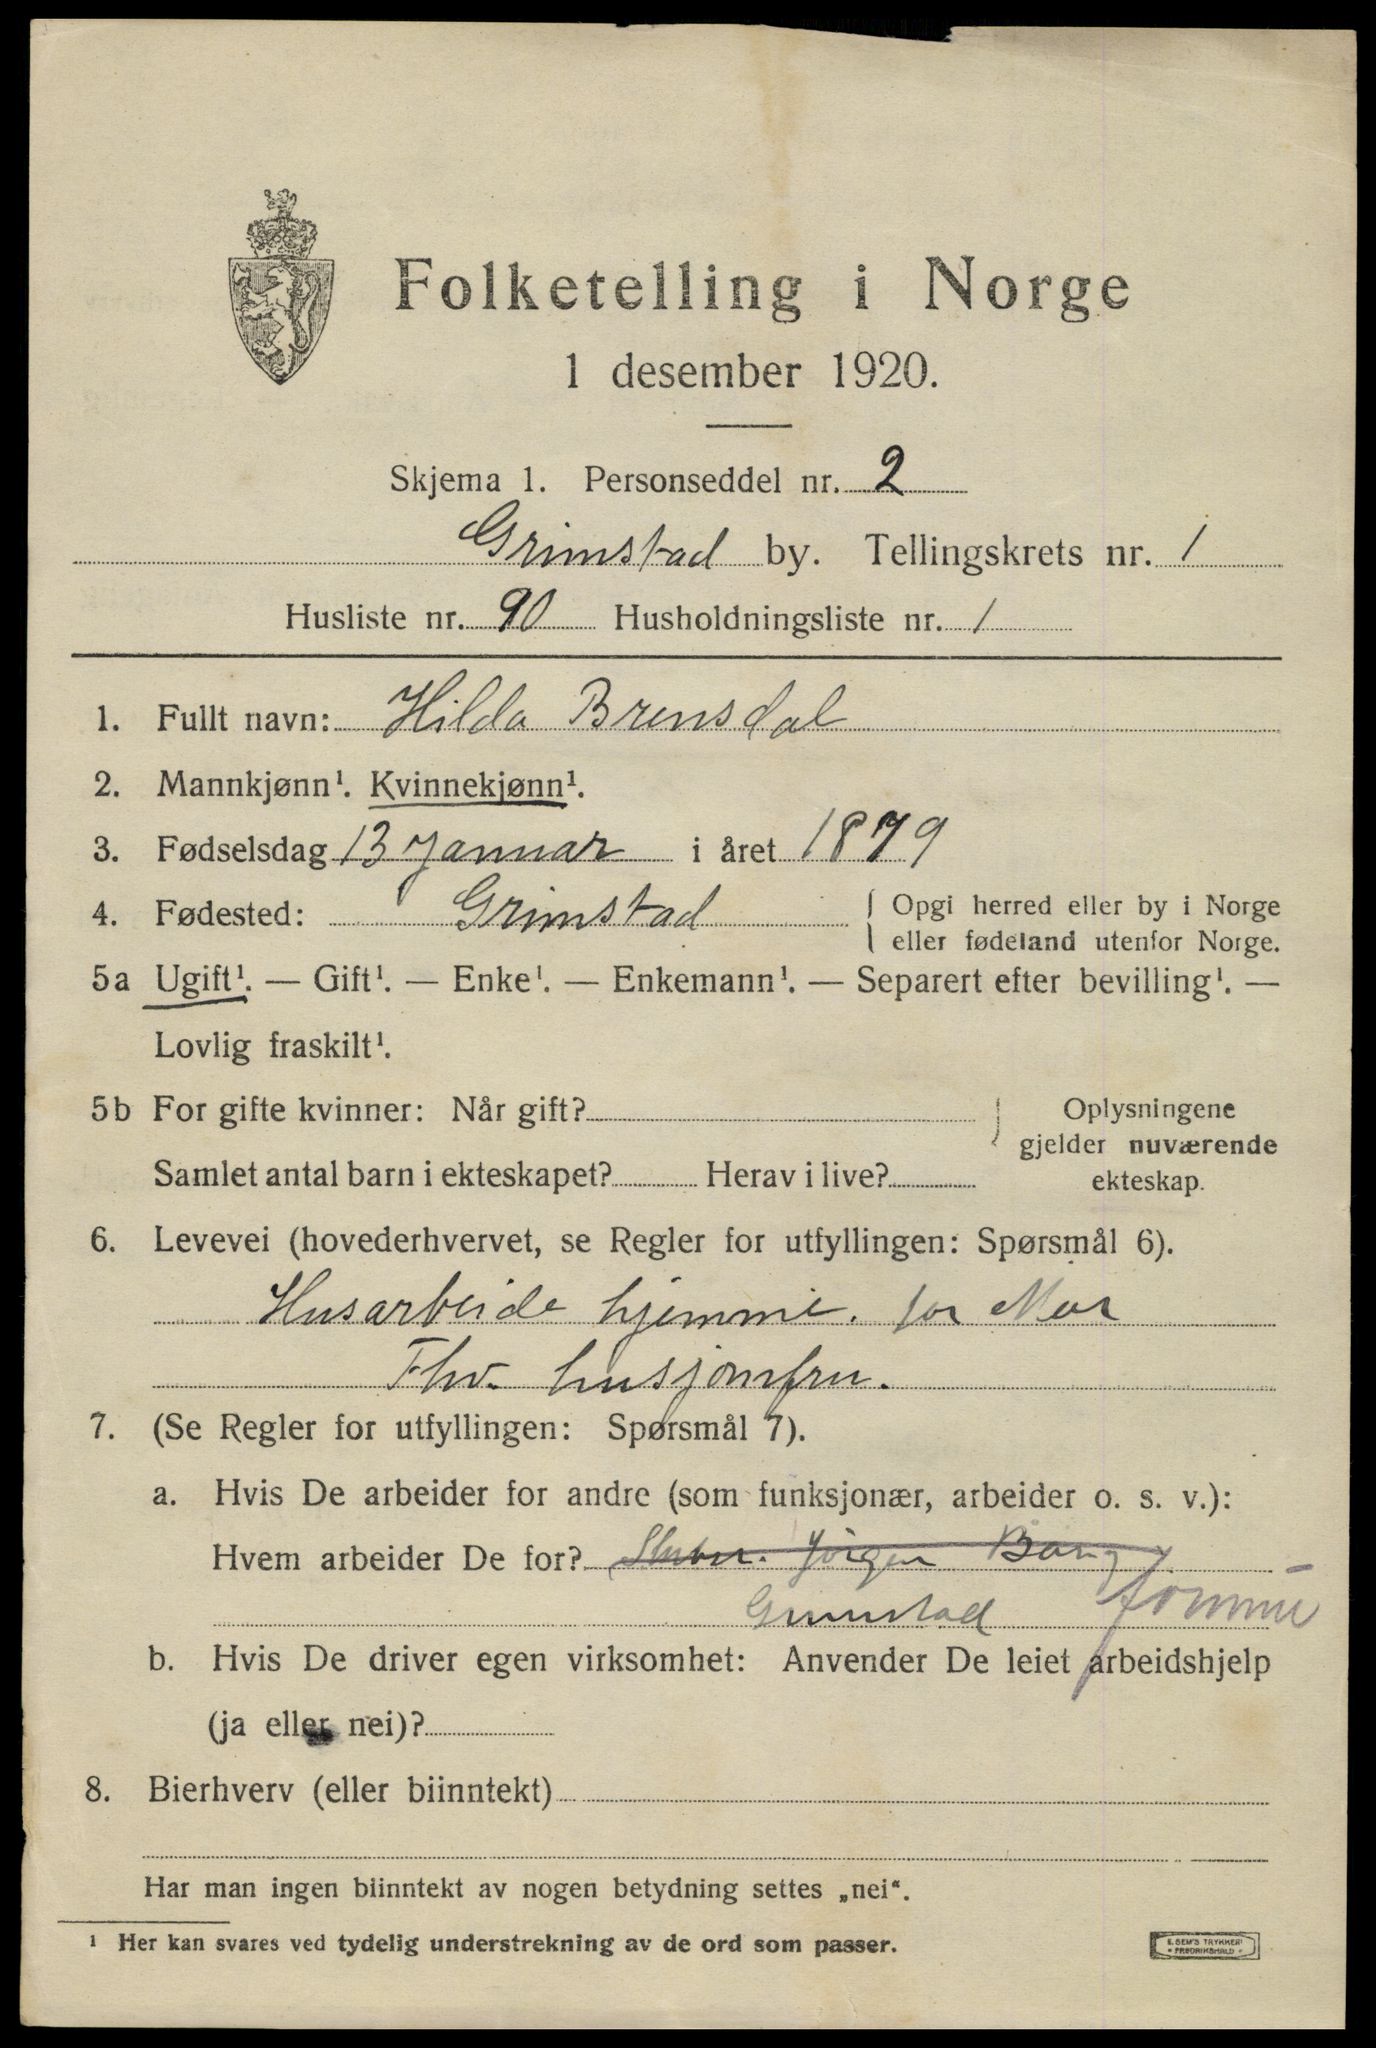 Folketelling i Norge
1 desember 1920.
Skjema 1. Personseddel nr. 2
Grimstad by. Tellingskrets nr. 1
Husliste nr. 90 Husholdningsliste nr. 1
1. Fullt navn: Hilda Brensdal
2. Mannkjønn¹. Kvinnekjønn¹.
3. Fødselsdag 13 Januar i året 1879
4. Fødested: Grimstad { Opgi herred eller by i Norge
eller fødeland utenfor Norge.
5a Ugift¹. — Gift¹. — Enke¹. — Enkemann¹. — Separert efter bevilling¹. —
Lovlig fraskilt¹.
5b For gifte kvinner: Når gift? } Oplysningene
gjelder nuværende
Samlet antal barn i ekteskapet? Herav i live? ekteskap.
6. Levevei (hovederhvervet, se Regler for utfyllingen: Spørsmål 6).
Husarbeide hjemme. for Mor
Fhv. husjomfru.
7. (Se Regler for utfyllingen: Spørsmål 7).
a. Hvis De arbeider for andre (som funksjonær, arbeider o. s. v.):
Hvem arbeider De for? Jörgen Bang
Grimstad
b. Hvis De driver egen virksomhet: Anvender De leiet arbeidshjelp
(ja eller nei)?
8. Bierhverv (eller biinntekt)
Har man ingen biinntekt av nogen betydning settes „nei“.
¹ Her kan svares ved tydelig understrekning av de ord som passer.
E. SEM'S TRYKKERI
• FREDRIKSHALD •